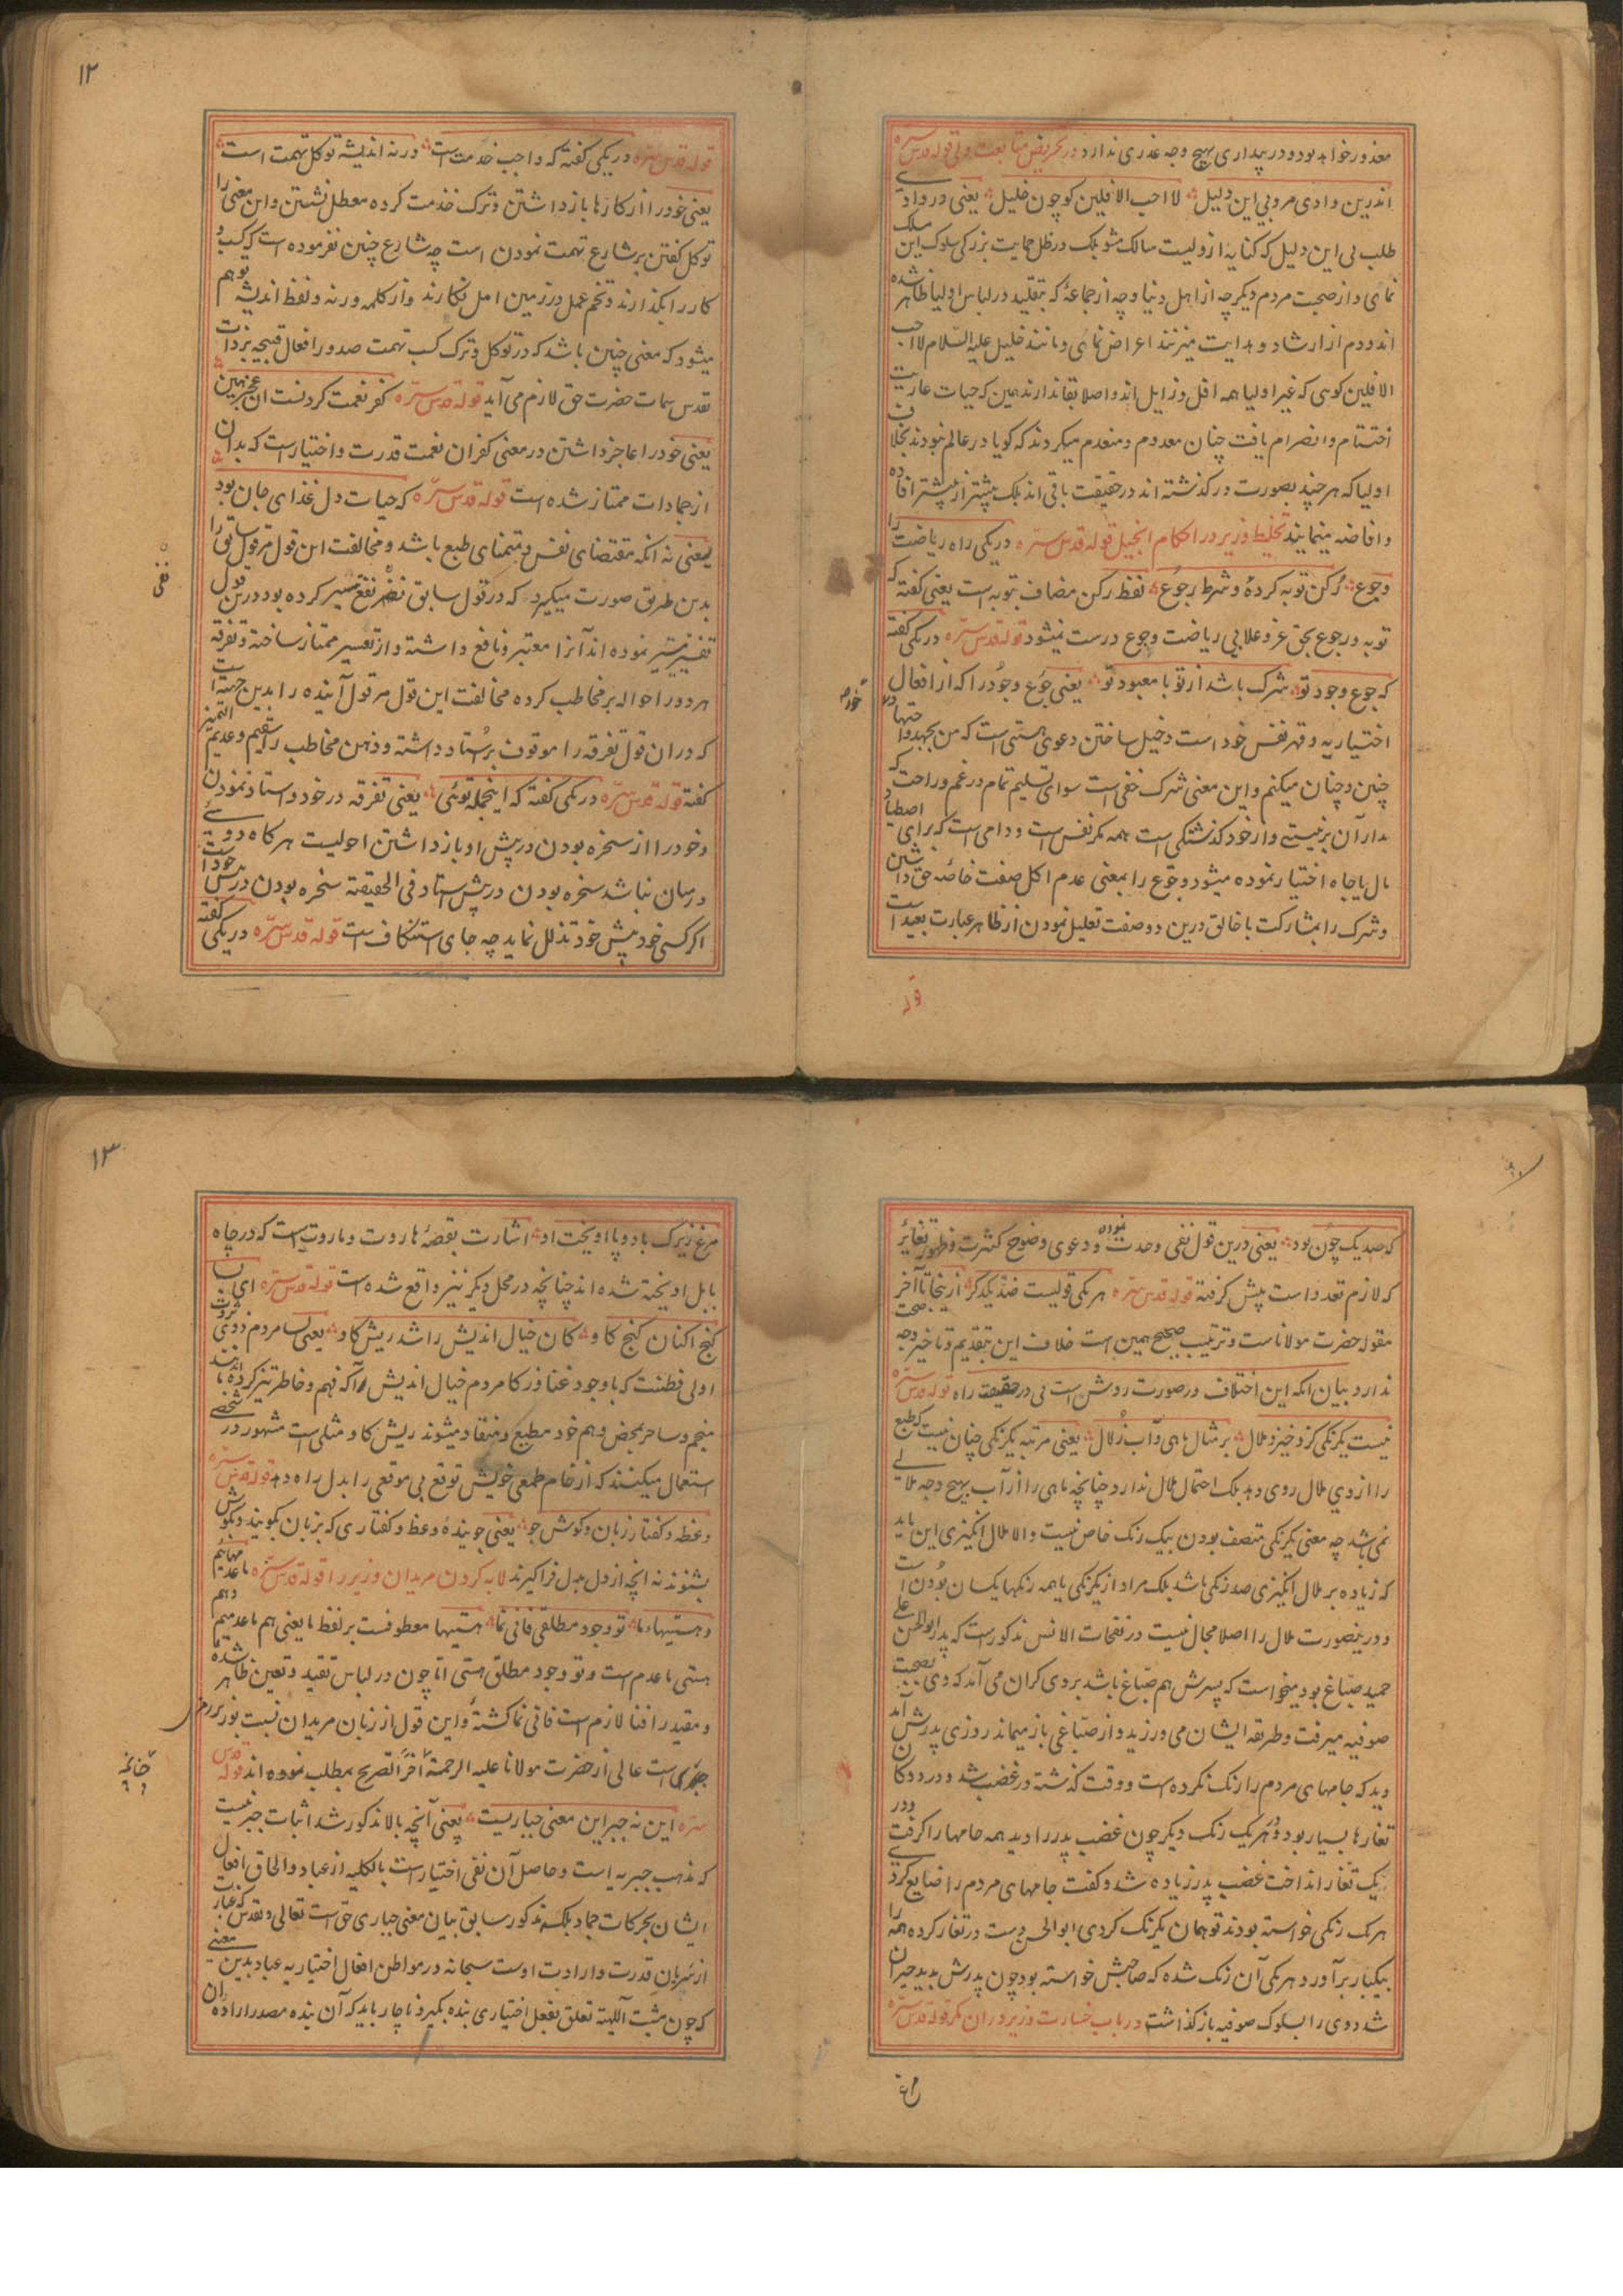 معذور خواهد بود و در بیداری هیچ وجه عذری ندارد در تحریض متابعت ولی قوله قدس سره
اندرین وادی مرو بی این دلیل لا احب الافلین کو چون خلیل یعنی در وادی
طلب بی این دلیل که کنایه از ولیست سالک مشو بلکه در ظل حمایت بزرگی سلوک این مسلک
نمای و از صحبت مردم دیگر چه از اهل دنیا و چه از جماعهٔ که بتقلید در لباس اولیا ظاهر شده
اند و دم از ارشاد و هدایت میزنند اعراض نمای و مانند خلیل علیه السلام لا احب
الافلین کوی که غیر اولیا همه افل و زایل اند و اصلا بقا ندارند همین که حیات عاریت
اختتام و انصرام یافت چنان معدوم و منعدم میکردند که کویا در عالم نبودند بخلاف
اولیا که هر چند بصورت در کذشته اند در حقیقت باقی اند بلکه بیشتر از پیشتر افاده
و افاضه مینمایند تخلیط وزیر در احکام انجیل قوله قدس سره در یکی راه ریاضت را
و جوع رکن توبه کرده و شرط رجوع لفظ رکن مضاف بتوبه است یعنی کفته که
توبه و رجوع بحق عز و علا بی ریاضت و جوع درست نمیشود قوله قدس سره در یکی کفته
که جوع و جود تو شرک باشد از تو با معبود تو یعنی جوع و جود را که از افعال
اختیاریه و قهر نفس خود است دخیل ساختن دعوی هستی است که من بجهد
چنین و چنان میکنم و این معنی شرک خفی است سوای تسلیم تمام در غم و راحت که
مدار آن بر نیستی و از خود کذشتکی است همه مکر نفس است و دامی است که برای اصطیاد
مال یا جاه اختیار نموده میشود و جوع را بمعنی عدم اکل صفت خاصه حق داشتن
و شرک را بمشارکت با خالق درین دو صفت تعلیل نمودن از ظاهر عبارت بعید است
قوله
۱۲
قوله قدس سره در یکی کفته که واجب خدمت است ورنه اندیشه توکل تهمت است
یعنی خود را از کارها باز داشتن و ترک خدمت کرده معطل نشستن و این معنی را
توکل کفتن بر شارع تهمت نمودن است چه شارع چنین نفرموده است که کسب و
کار را بکذارند و تخم عمل در زمین امل نکارند و از کلمه ورنه و لفظ اندیشه توهم
میشود که معنی چنین باشد که در توکل و ترک کسب تهمت صدور افعال قبیحه بر ذات
تقدس سمات حضرت حق لازم می آید قوله قدس سره کفر نعمت کردنست ان عجز بین
یعنی خود را عاجز داشتن در معنی کفران نعمت قدرت و اختیار است که بدان
از جمادات ممتاز شده است قوله قدس سره که حیات دل غذای جان بود
یعنی نه انکه مقتضای نفس و متمنای طبع باشد و مخالفت این قول مر قول سابق را
بدین طریق صورت میکیرد که در قول سابق نفی نفع میسر کرده بود درین قول
تفسیر میسر نموده اند آنرا معتبر و نافع داشته و از تعسیر ممتاز ساخته و تفرقه
هر دو را حواله بر مخاطب کرده مخالفت این قول مر قول آینده را بدین جهت است
که دران قول تفرقه را موقوف بر استاد داشته و ذهن مخاطب را سقیم و عدیم التمیز
کفته قوله قدس سره در یکی کفته که اینجمله توئی یعنی تفرقه در خود و استاد نمودن
و خود را از سخره بودن در پیش او باز داشتن احولیست هر کاه دوئے
در میان نباشد سخره بودن در پیش استاد فی الحقیقته سخره بودن در پیش خود است
اکر کسی خود پیش خود تذلل نماید چه جای استنکاف است قوله قدس سره در یکی کفته
که صد یک چون بود یعنی درین قول نفی وحدت نموده و دعوی وضوح کثرت و ظهور تغایر
که لازم تعدد است پیش کرفته قوله قدس سره هر یکی قولیست ضد یکدکر از ینجا تا آخر
مقوله حضرت مولاناست و ترتیب صحیح همین است خلاف این بتقدیم و تاخیر وجه صحت
ندارد بیان انکه این اختلاف در صورت روش است نی در حقیقت راه قوله قدس سره
نیست یکرنکی کزو خیزد ملال بر مثال ماهی و آب زلال یعنی مرتبه یکرنکی چنان نیست که طبع
را از دی ملال روی دهد بلکه احتمال ملال ندارد چنانچه ماهی را از آب هیچ وجه ملالے
نمی باشد چه معنی یکرنکی متصف بودن بیک رنک خاص نیست والا ملال انکیزی این باید
که زیاده بر ملال انکیزی صد رنکی باشد بلکه مراد از یکرنکی با همه رنکها یکسان بودن است
و درینصورت ملال را اصلا مجال نیست در نفحات الانس مذکور است که پدر ابو الحسن علی
حمید صباغ بود میخواست که پسرش هم صباغ باشد بر وی کران می آمد که وی بصحبت
صوفیه میرفت و طریقه ایشان می ورزید و از صباغی باز میماند روزی پدرش آمد
دید که جامهای مردم را رنک نکرده است و وقت کذشته در غضب شد و در دوکان
تغارها بسیار بود و در هر یک رنک دیکر چون غضب پدر را دید همه جامها را کرفت و در
یک تغار انداخت غضب پدر زیاده شد و کفت جامهای مردم را ضایع کردے
هر یک رنکی خواسته بودند تو همان یکرنک کردی ابو الحسن دست در تغار کرده همه را
بیکبار بر آورد و هر یکی آن رنک شده که صاحبش خواسته بود چون پدرش بدید حیران
شد و وی را بسلوک صوفیه باز کذاشت در باب خسارت وزیر دران مکر قوله قدس سره
مرغ
۱۳
مرغ زیرک با دو پا اویخت او اشارت بقصهٔ هاروت و ماروت است که در چاه
بابل اویخته شده اند چنانچه در محل دیکر نیز واقع شده است قوله قدس سره ای بسا
کنج اکنان کنج کاو کان خیال اندیش را شد ریش کاو یعنی بسا مردم ذوی ثروت
اولی فطنت که با وجود غنا و زکا مردم خیال اندیش را که فهم و خاطر تیز کرده اند یا
منجم و ساحر بمحض وهم خود مطیع و منقاد میشوند ریش کاو مثلی است مشهور در شخصے
استعمال میکنند که از خام طمعی خویش توقع بی موقعی را بدل راه دهد قوله قدس سره
وعظ و کفتار زبان و کوش جو یعنی جوینده وعظ و کفتاری که بزبان کویند و بکوش
بشنوند نه انچه از دل بدل فرا کیرند لابه کردن مریدان وزیر را قوله قدس سره ما عدمهائیم
و هستیها ما تو وجود مطلقی فانی نما هستیها معطوفست بر لفظ ما یعنی هم ما عدمیم و هم
هستی ما عدم است و تو وجود مطلق هستی اما چون در لباس تقید و تعین ظاهر شده
و مقید را فنا لازم است فانی نما کشتهٔ و این قول از زبان مریدان نسبت بوزیر رمزی
است عالی از حضرت مولانا علیه الرحمة آخرا تصریح بمطلب نموده اند قوله قدس
سره این نه جبر این معنی جباریست یعنی آنچه بالا مذکور شد اثبات جبر نیست
که مذهب جبریه است و حاصل آن نفی اختیار است بالکلیه از عباد و الحاق افعال
ایشان بحرکات جماد بلکه مذکور سابق بیان معنی جباری حق است تعالی و تقدس که عبارت
از سریان قدرت و ارادت اوست سبحانه در مواطن افعال اختیاریه عباد بدین معنے
که چون مشیت آلهیه تعلق بفعل اختیاری بنده بکیرد ناچار باید که آن بنده مصدر اراده ان